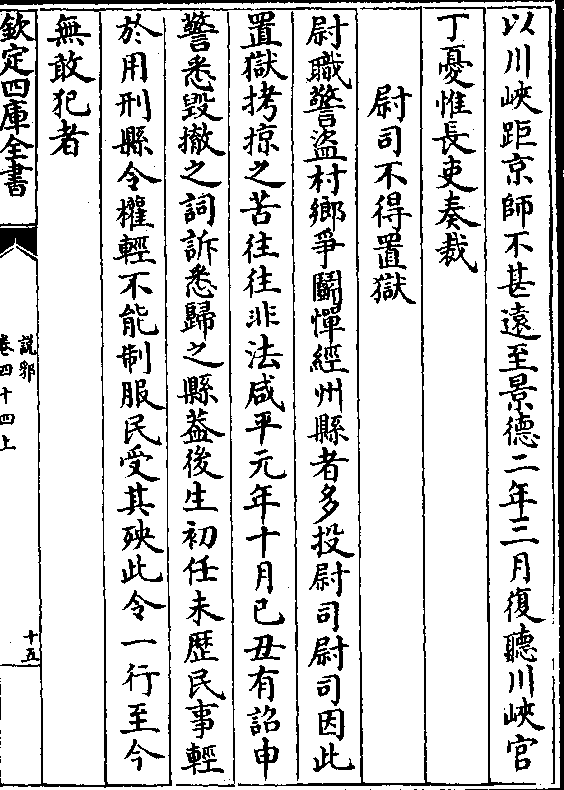 以川峽距京師不甚遠至景德二年三月復聽川峽官
丁憂惟長吏奏裁
尉司不得置獄
尉職警盜村鄉爭鬭憚經州縣者多投尉司尉司因此
置獄拷掠之苦往往非法咸平元年十月己丑有詔申
警悉毀撤之詞訴悉歸之縣葢後生初任未歴民事輕
於用刑縣令權輕不能制服民受其殃此令一行至今
無敢犯者
欽定四庫全書
說郛
卷四十四上
十五